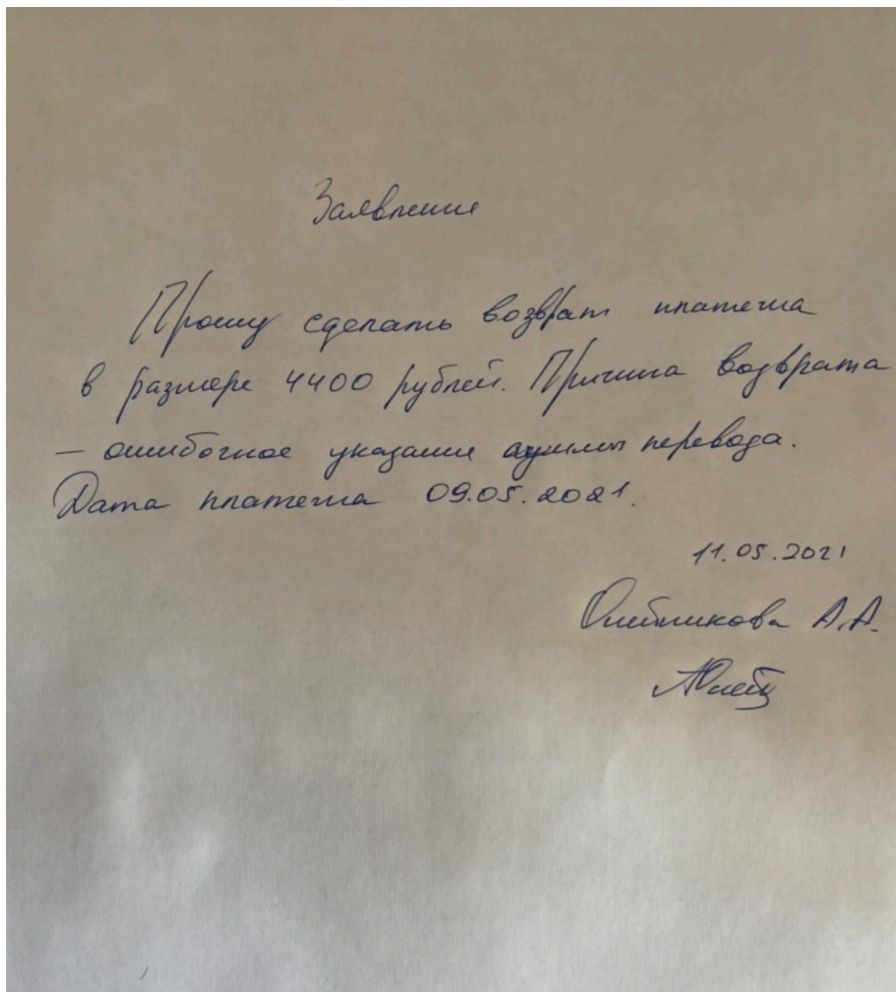 Заявление
Прошу сделать возврат платежа
в размере 4400 рублей. Причина возврата
– ошибочное указание суммы перевода.
Дата платежа 09.05.2021.
11.05.2021
А.А.